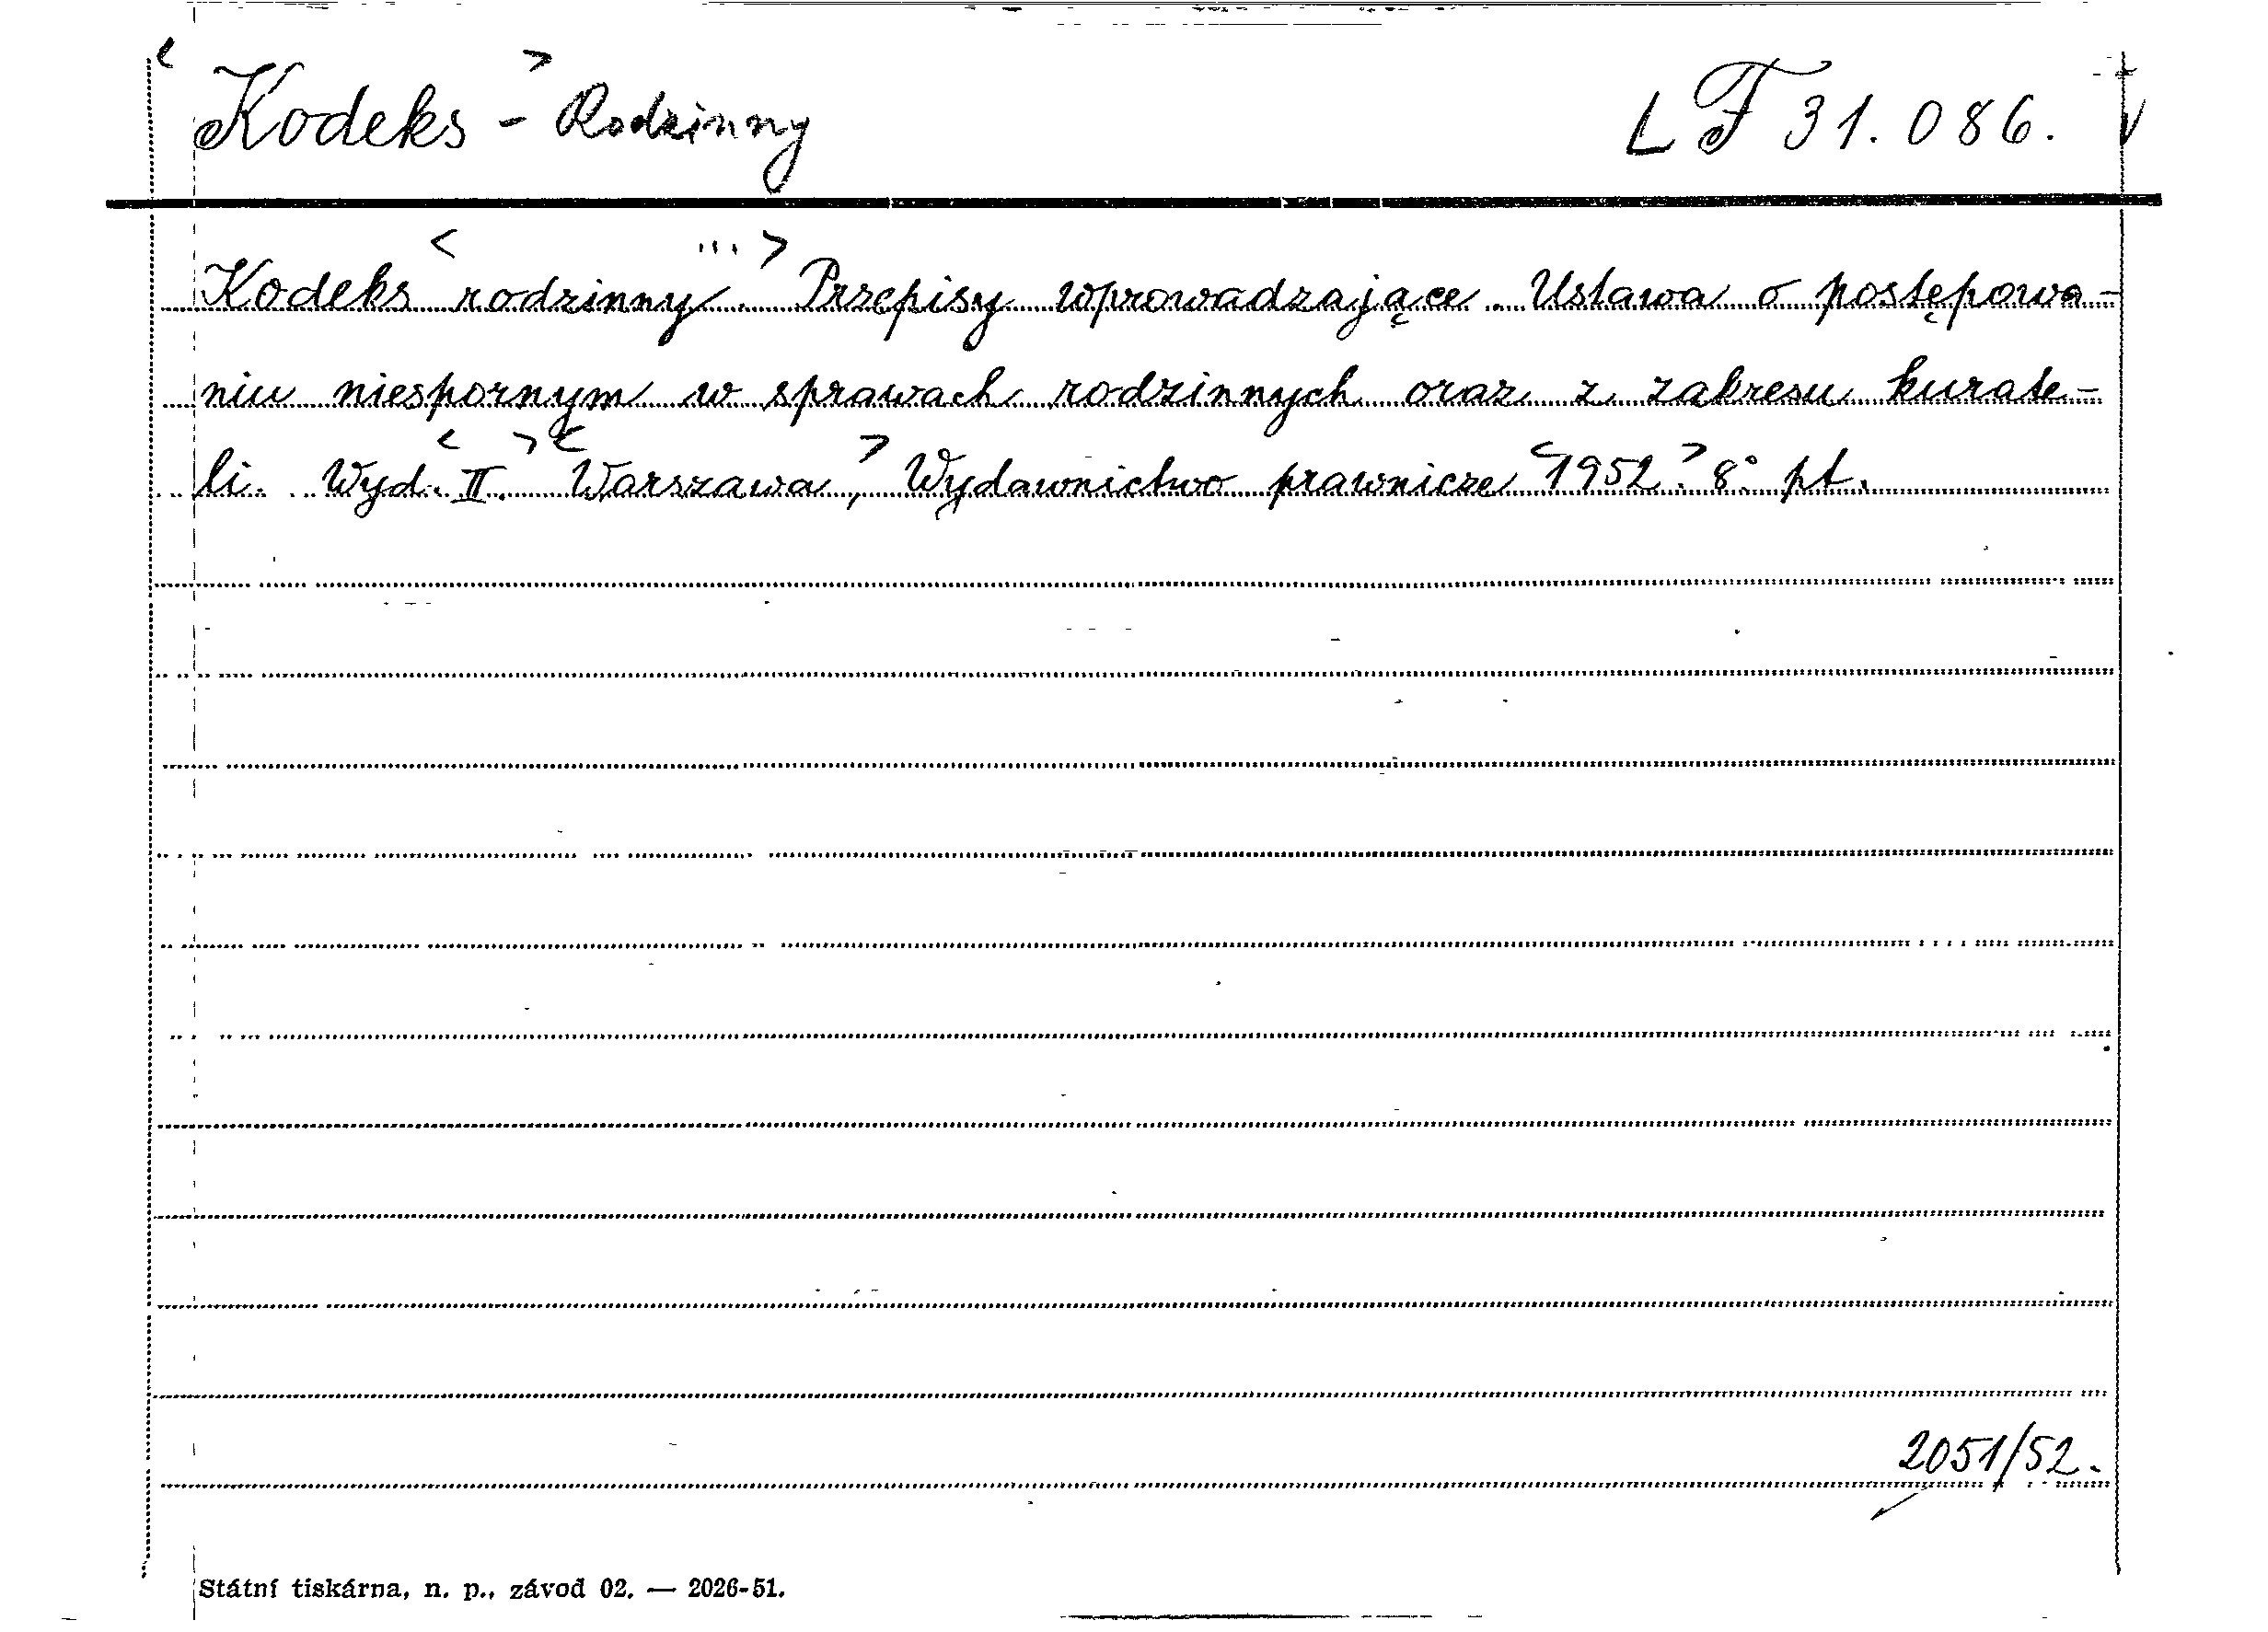 Kodeks - Rodzinny LF 31.086.
Kodeks rodzinny. Przepisy wprowadzające. Ustawa o postępowa-
niu niespornym w sprawach rodzinnych oraz z zakresu kurate-
li. Wyd. II. Warszawa, Wydawnictwo prawnicze 1952. 8° pt.
2051/52.
Státní tiskárna, n. p., závod 02. — 2026-51.